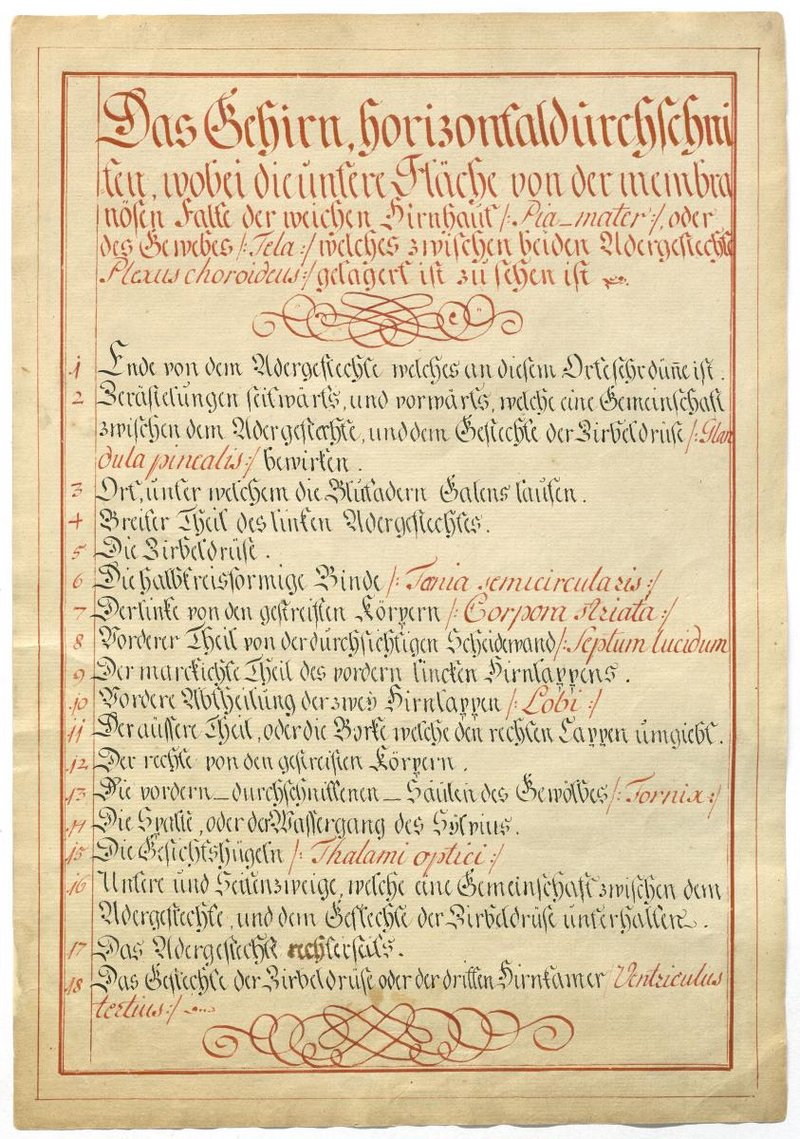 Das Gehirn, horizontaldurchschni
ten, wobei die untere Fläche von der membra
nösen Falte der weichen Hirnhaut /: Pia_mater :/, oder
des Gewebes /: Tela :/ welches zwischen beiden Adergeflechte
Plexus choroideus :/ gelagert ist zu sehen ist
1 Ende von dem Adergeflechte welches an diesem Orte sehr dün̄e ist.
2 Zerästelungen seitwärts, und vorwärts, welche eine Gemeinschaft
zwischen dem Adergeflechte, und dem Geflechte der Zirbeldrüse /: Glan
dula pinealis :/ bewirken.
3 Ort, unter welchem die Blutadern Galens laufen.
4 Breiter Theil des linken Adergeflechtes.
5 Die Zirbeldrüse.
6 Die halbkreisformige Binde /: Tænia semicircularis :/
7 Der linke von den gestreiften Körpern /: Corpora striata :/
8 Vorderer Theil von der durchsichtigen Scheidewand /: Septum lucidum
9 Der marckichte Theil des vordern lincken Hirnlappens.
10 Vordere Abtheilung der zwey Hirnlappen /: Lobi :/
11 Der äussere Theil, oder die Borke welche den rechten Lappen umgiebt.
12 Der rechte von den gestreiften Körpern.
13 Die vordern_durchschnittenen_Säulen des Gewölbes /: Fornix :/
14 Die Spalte, oder der Wassergang des Sÿlvius.
15 Die Gesichtshügeln /: Thalami optici :/
16 Untere und Seitenzweige, welche eine Gemeinschaft zwischen dem
Adergeflechte, und dem Geflechte der Zirbeldrüse unterhalten.
17 Das Adergeflecht rechterseits.
18 Das Geflechte der Zirbeldrüse oder der dritten Hirnkamer /Ventriculus
tertius :/